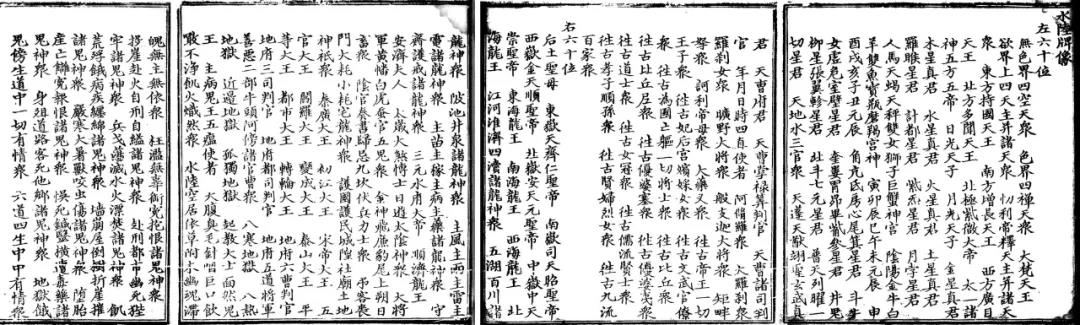 水陸牌像
左六十位
無色界四空天衆　色界四禪天衆　大梵天王
欲界上四天主并諸天衆　忉利帝釋天主并諸天
衆　東方持國天王　南方增長天王　西方廣目
天王　北方多聞天王　北極紫微大帝　太一諸
神五方五帝　日光天子　月光天子　金星真君
木星真君　水星真君　火星真君　土星真君
羅睺星君　計都星君　紫炁星君　月孛星君
人馬天蝎天秤雙女獅子巨蟹神宮　陰陽金牛白
羊雙魚寶瓶磨羯宮神　寅卯辰巳午未元辰　申
酉戌亥子丑元辰　角亢氐房心尾箕星君　斗牛
女虛危室壁星君　奎婁胃昴畢觜參星君　井鬼
柳星張翼軫星君　北斗七元星君　普天列曜一
切星君　天地水三官衆　天蓬天猷翊聖玄武真
君　天曹府君　天曹掌禄筭判官　天曹諸司判
官　年月日時四直使者　阿脩羅衆　大羅刹衆
羅刹女衆　曠野大將衆　般支迦大將衆　矩畔
拏衆　訶利帝母衆　大藥叉衆　往古帝王一切
王子衆　往古妃后宮嬪婇女衆　往古文武官僚
衆　往古為國亡軀一切將士衆　往古比丘衆
往古比丘尼衆　往古優婆塞衆　往古優婆夷衆
往古道士衆　往古女冠衆　往古儒流賢士衆
往古孝子順孫衆　往古賢婦烈女衆　往古九流
百家衆
右六十位
后土聖母　東嶽天齊仁聖帝　南嶽司天昭聖帝
西嶽金天順聖帝　北嶽安天元聖帝　中嶽中天
崇聖帝　東海龍王　南海龍王　西海龍王　北
海龍王　江河淮濟四瀆諸龍神衆　五湖百川諸
龍神衆　陂池井泉諸龍神衆　主風主雨主雷主
電諸龍神衆　主苗主稼主病主藥諸龍神衆　守
齋護戒諸龍神衆　三元水府大帝　順濟龍王
安濟夫人　太歲大煞博士日遊太陰神衆　大將
軍黄幡白虎蚕官五鬼衆　金神飛廉豹尾上朔日
畜衆　陰官奏書歸忌九坎伏兵力士衆　吊客喪
門大耗小耗宅龍神衆　護國護民城隍社廟土地
神祇衆　秦廣大王　初江大王　宋帝大王　五
官大王　閻羅大王　變成大王　泰山大王　平
等大王　都市大王　轉輪大王　地府六曹判官
地府三司判官　地府都司判官　地府五道將軍
善惡二部牛頭阿傍諸官曹衆　八寒地獄　八熱
地獄　近邊地獄　孤獨地獄　起教大士面然鬼
王　主病鬼王五瘟使者　大腹臭毛針咽巨口飲
噉不浄飢火熾然衆　水陸空居依草附木幽魂滯
魄無主無依衆　枉濫無辜銜寃抱恨諸鬼神衆
投崖赴火自刑自縊諸鬼神衆　赴刑都市幽死狴
牢諸鬼神衆　兵戈盪滅水火漂焚諸鬼神衆　飢
荒殍餓病疾纏綿諸鬼神衆　墻崩屋倒樹折崖摧
諸鬼神衆　嚴寒大暑獸咬虫傷諸鬼神衆　墮胎
産亡讎寃報恨諸鬼神衆　悞死針醫横遭毒藥諸
鬼神衆　身殂道路客死他鄉諸鬼神衆　地獄餓
鬼傍生道中一切有情衆　六道四生中中有情衆